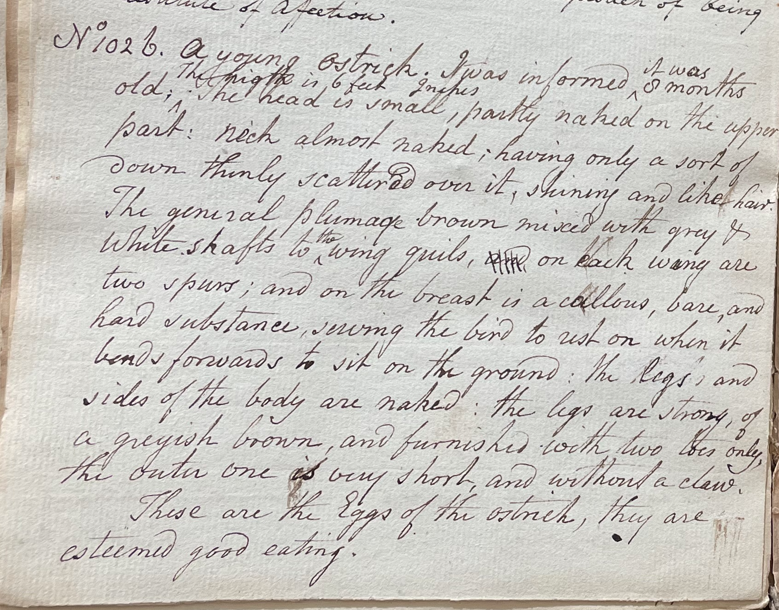 of Afection.
of being
No 1026. A young Ostrich. I was informed, it was 8 months
old; The hight is 6 feet Inches The head is small, partly naked on the upper
part: neck almost naked; having only a sort of
down thinly scattered over it, shining and like hair.
The general plumage brown mixed with grey &
White. shafts to the wing quils, on each wing are
two spurs; and on the breast is a callous, bare, and
hard substance, serving the bird to rest on when it
bends forwards to sit on the ground: the legs, and
sides of the body are naked: the legs are strong, of
a greyish brown, and furnished with two toes only,
the outer one is very short, and without a claw.
These are the Eggs of the ostrich, they are
esteemed good eating.